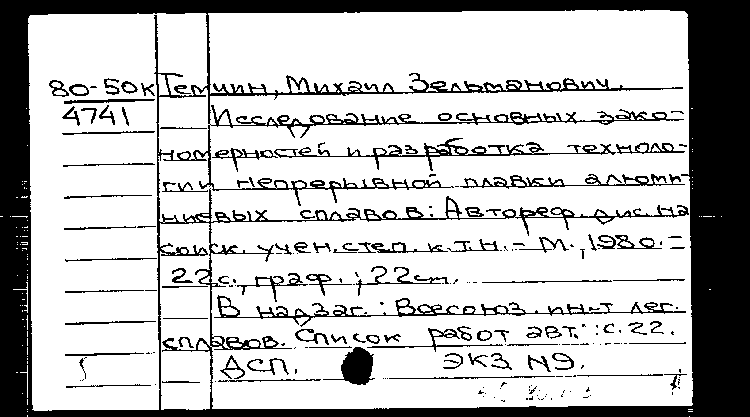 80-50к Темкин, Михаил Зельманович.
4741 Исследование основных зако-
номерностей и разработка техноло-
гии непрерывной плавки алюми-
ниевых сплавов: Автореф. дис. на
соиск. учен. степ. к.т.н. - М., 1980. -
22с., граф.; 22см.
В надзаг.: Всесоюз. ин-т лег.
сплавов. Список работ авт.: с.22.
ДСП. ЭКЗ N9.